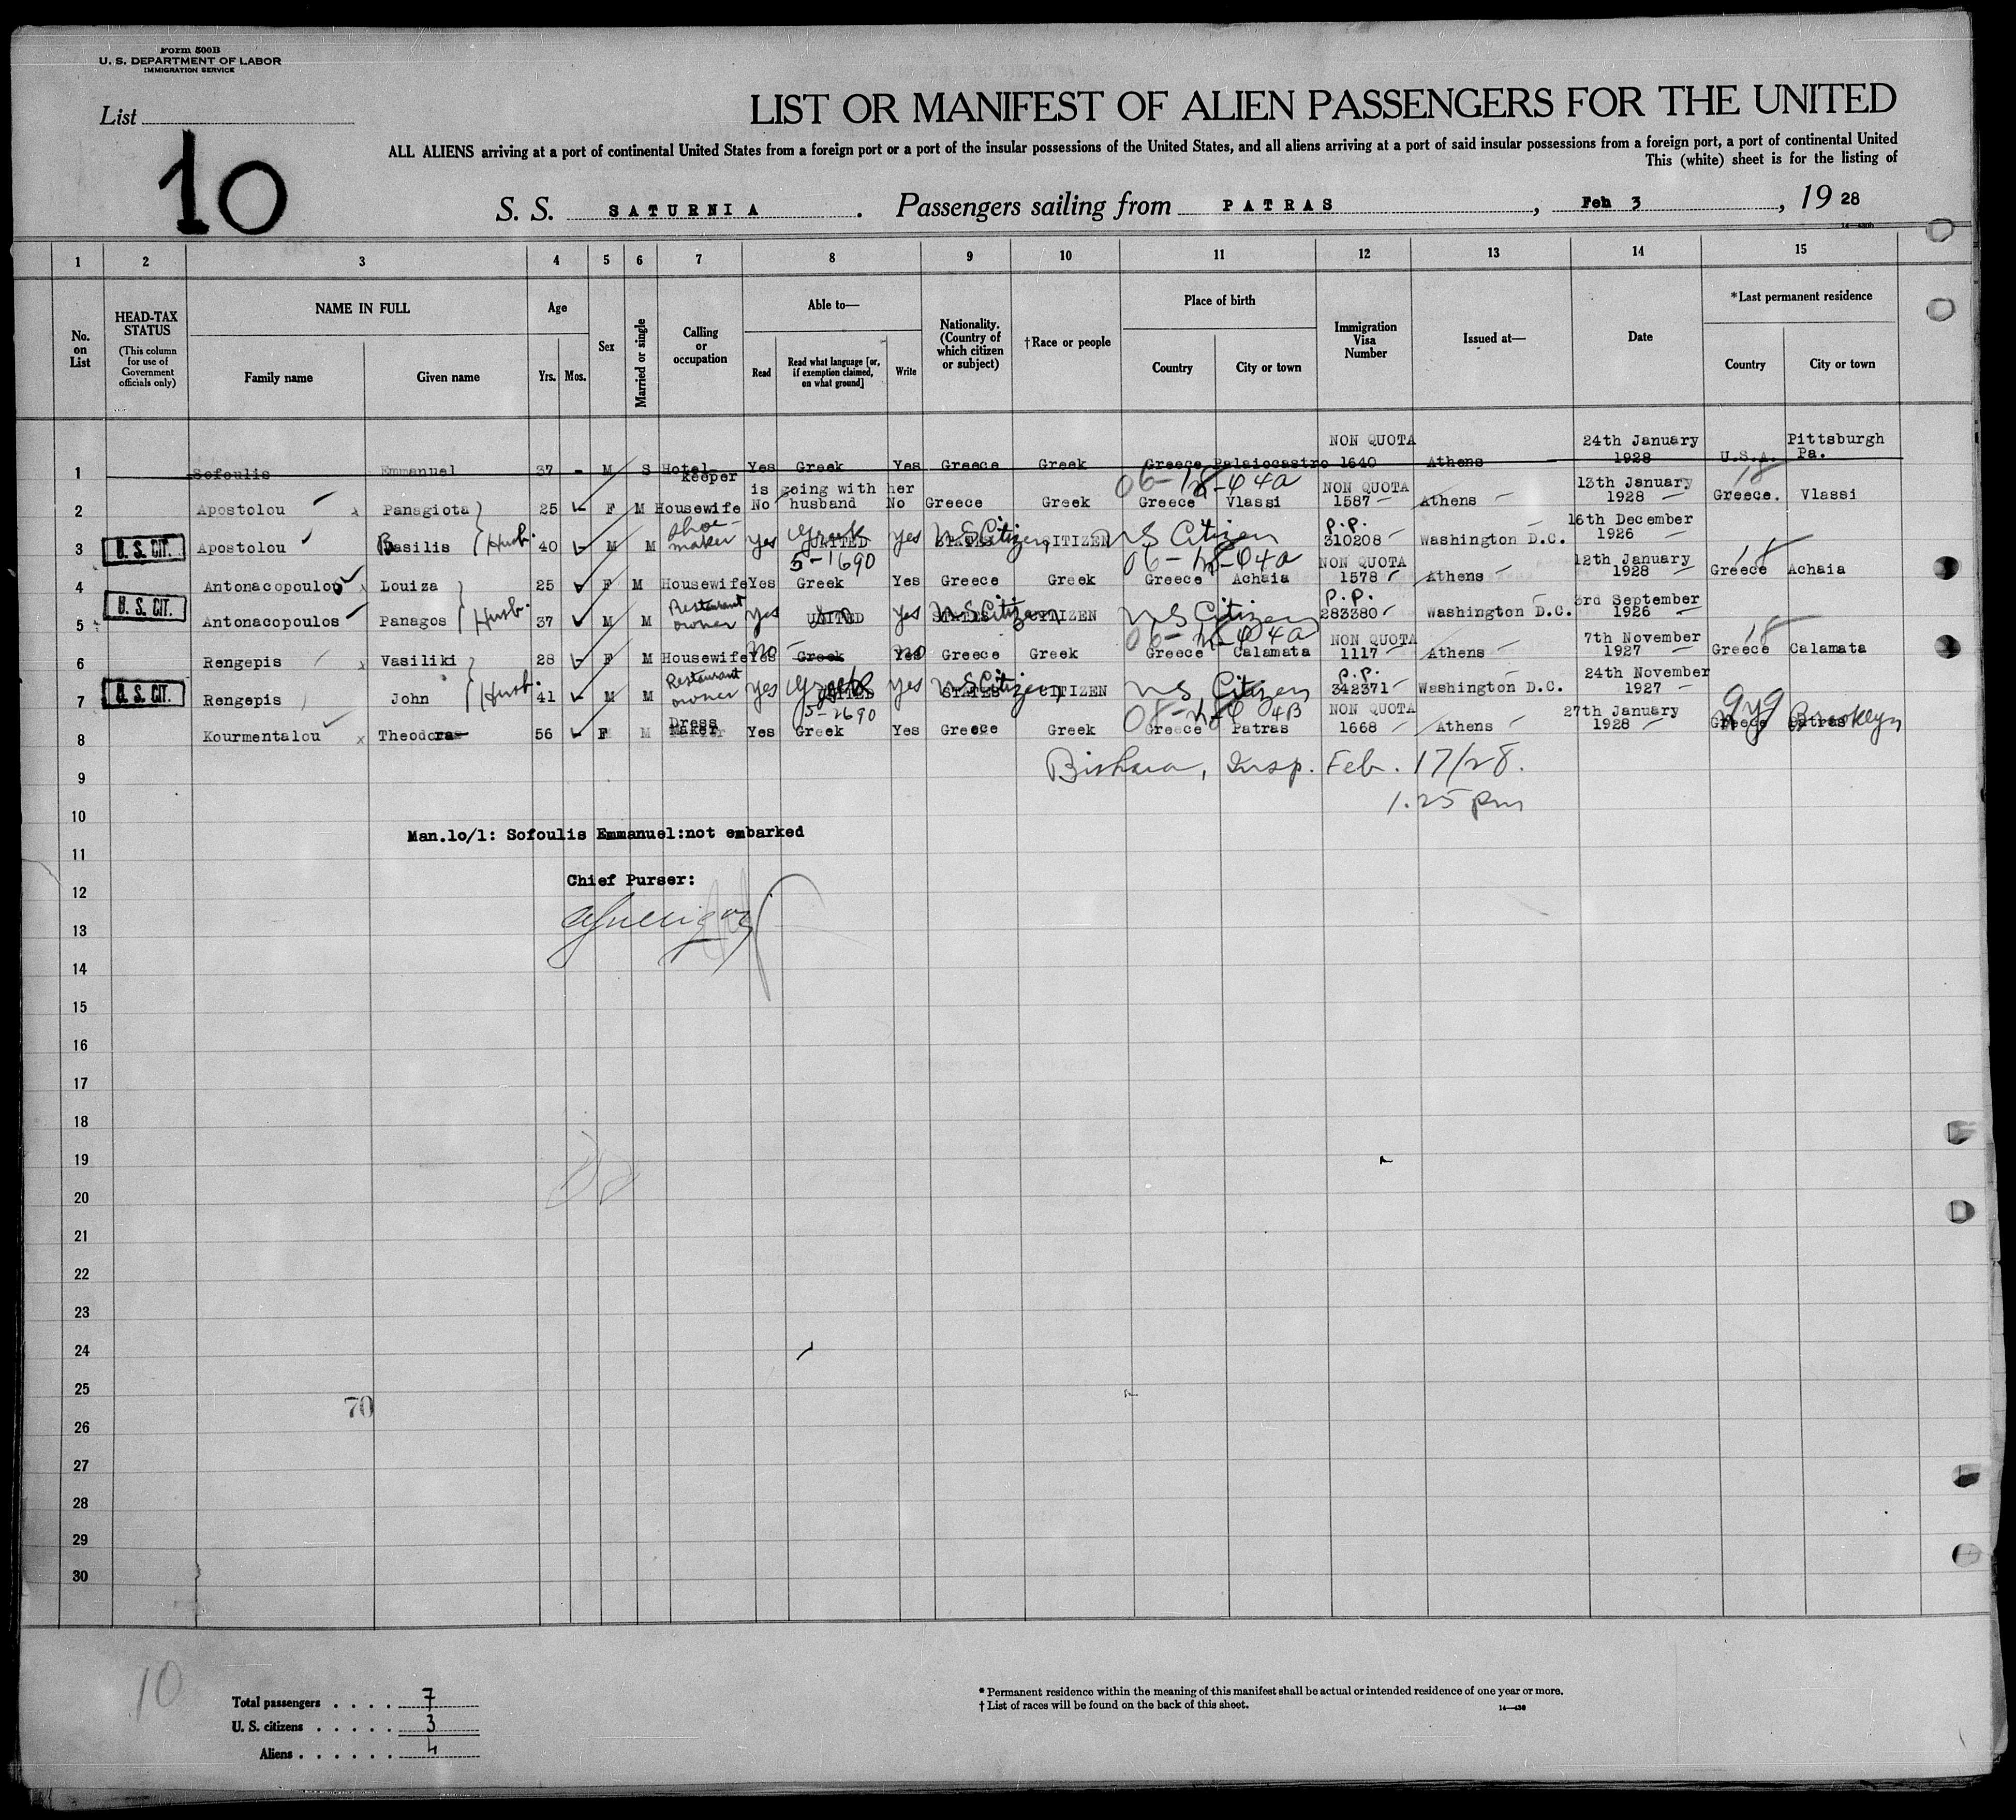 Form 500B
U. S. DEPARTMENT OF LABOR
IMMIGRATION SERVICE
List
10
LIST OR MANIFEST OF ALIEN PASSENGERS FOR THE UNITED
ALL ALIENS arriving at a port of continental United States from a foreign port or a port of the insular possessions of the United States, and all aliens arriving at a port of said insular possessions from a foreign port, a port of continental United
This (white) sheet is for the listing of
S. S. SATURNIA. Passengers sailing from PATRAS, Feb 3, 19 28
1 2 3 4 5 6 7 8 9 10 11 12 13 14 15
No. on List
HEAD-TAX STATUS (This column for use of Government officials only)
NAME IN FULL Family name Given name
Age Yrs. Mos.
Sex
Married or single
Calling or occupation
Able to— Read Read what language [or, if exemption claimed, on what ground] Write
Nationality. (Country of which citizen or subject)
†Race or people
Place of birth Country City or town
Immigration Visa Number
Issued at—
Date
*Last permanent residence Country City or town
1 Sofoulis Emmanuel 37 - M S Hotel keeper Yes Greek Yes Greece Greek Greece Palaiocastro NON QUOTA 1640 Athens 24th January 1928 U.S.A. Pittsburgh Pa.
2 Apostolou Panagiota 25 - F M Housewife No is going with her husband No Greece Greek Greece Vlassi NON QUOTA 1587 Athens 13th January 1928 Greece. Vlassi
3 U. S. CIT. Apostolou Basilis Husb. 40 - M M Shoe-maker Yes Greek UNITED Yes STATES US Citizen CITIZEN US Citizen P.P. 310208 Washington D.C. 16th December 1926
4 Antonacopoulou Louiza 25 F M Housewife Yes 5-1690 Greek Yes Greece Greek Greece Achaia NON QUOTA 1578 Athens 12th January 1928 Greece Achaia
5 U. S. CIT. Antonacopoulos Panagos Husb. 37 M M Restaurant owner Yes UNITED Yes STATES US Citizen CITIZEN US Citizen P.P. 283380 Washington D.C. 3rd September 1926
6 Rengepis Vasiliki 28 - F M Housewife Yes No Greek Yes No Greece Greek Greece Calamata NON QUOTA 1117 Athens 7th November 1927 Greece Calamata
7 U. S. CIT. Rengepis John Husb. 41 - M M Restaurant owner Yes Greek UNITED Yes STATES US Citizen CITIZEN US Citizen P.P. 342371 Washington D.C. 24th November 1927
8 Kourmentalou Theodora 56 - F M Dress Maker Yes 5-2690 Greek Yes Greece Greek Greece Patras NON QUOTA 1668 Athens 27th January 1928 Greece Patras Brooklyn
9
Bishara, Insp. Feb. 17/28.
1.25 pm
10
Man.10/1: Sofoulis Emmanuel:not embarked
11
Chief Purser:
12
13
14
15
16
17
18
19
20
21
22
23
24
25
70
26
27
28
29
30
10
Total passengers . . . . 7
U. S. citizens . . . . . 3
Aliens . . . . . . 4
* Permanent residence within the meaning of this manifest shall be actual or intended residence of one year or more.
† List of races will be found on the back of this sheet.
14—430